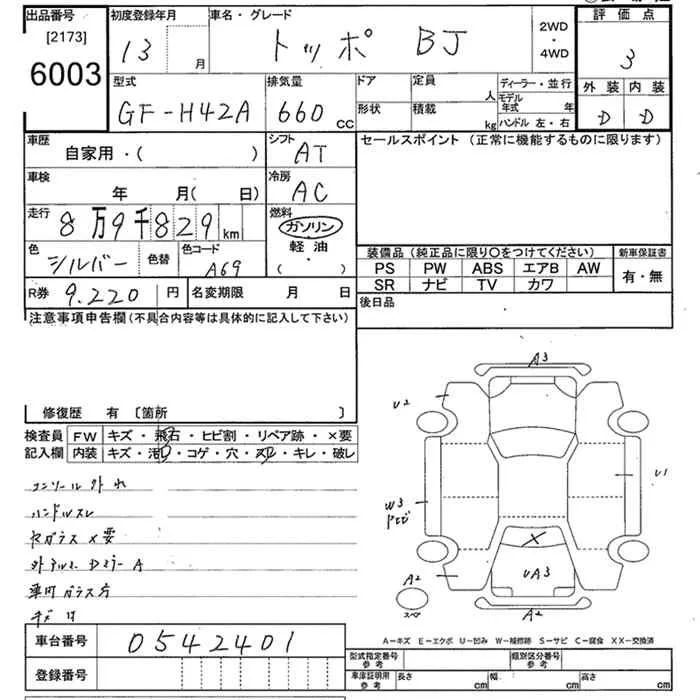 出品番号 初度登録年月 車名・グレード 2WD・4WD 評価点
[2173]
6003
13 月 トッポ BJ 3
型式 排気量 ドア 定員 ディーラー・並行 外装 内装
GF-H42A 660 cc 人 モデル年式 年 D D
形状 積載 kg ハンドル 左・右
車歴 シフト セールスポイント (正常に機能するものに限ります)
自家用・( ) AT
車検 冷房
年 月( 日) AC
走行 燃料
8万9千829km ガソリン
軽油
( ・ )
色 シルバー 色替 色コード A69
装備品(純正品に限り○をつけてください) 新車保証書
PS PW ABS エアB AW 有・無
SR ナビ TV カワ
R券 9.220 円 名変期限 月 日 後日品
注意事項申告欄(不具合内容等は具体的に記入して下さい)
修復歴 有 〔箇所 〕
検査員 FW キズ・飛石・ヒビ割・リペア跡・×要
記入欄 内装 キズ・汚・コゲ・穴・スレ・キレ・破レ
コンソール外れ
ハンドルスレ
ガラス×要
A
ガラス
A3
U2
U1
W3
UA3
A2
A2
スペア
A-キズ E-エクボ U-凹み W-補修跡 S-サビ C-腐食 XX-交換済
車台番号 0542401
型式指定番号 参考 類別区分番号 参考
登録番号
車庫証明用 参考 長さ cm 幅 cm 高さ cm